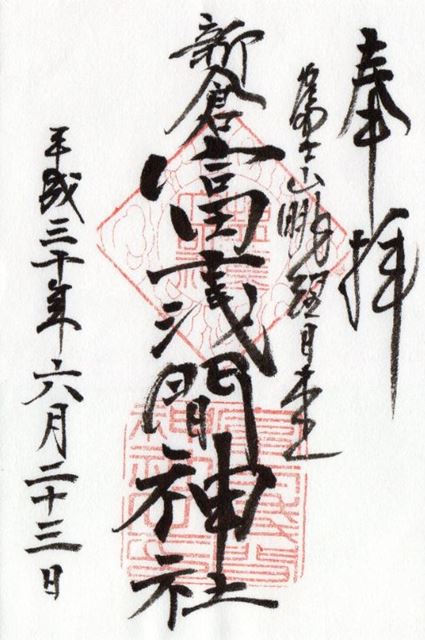 奉拝
富士山眺望日本一
新倉富士浅間神社
平成三十年六月二十三日